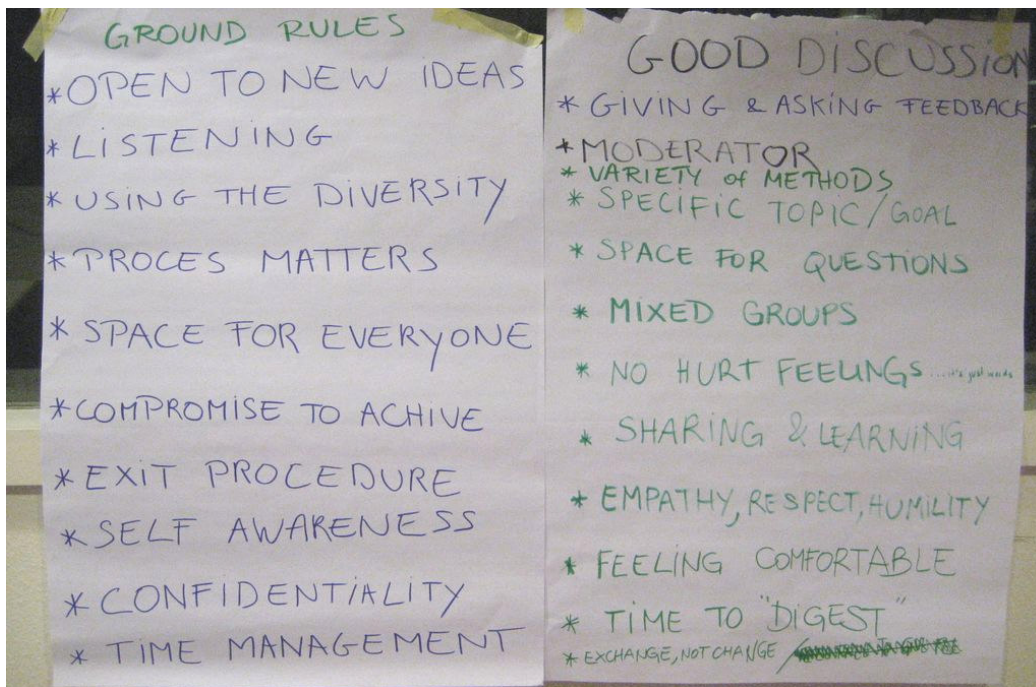 GROUND RULES
* OPEN TO NEW IDEAS
* LISTENING
* USING THE DIVERSITY
* PROCES MATTERS
* SPACE FOR EVERYONE
* COMPROMISE TO ACHIVE
* EXIT PROCEDURE
* SELF AWARENESS
* CONFIDENTIALITY
* TIME MANAGEMENT
GOOD DISCUSSION
* GIVING & ASKING FEEDBACK
* MODERATOR
* VARIETY of METHODS
* SPECIFIC TOPIC/GOAL
* SPACE FOR QUESTIONS
* MIXED GROUPS
* NO HURT FEELINGS ....it's just words
* SHARING & LEARNING
* EMPATHY, RESPECT, HUMILITY
* FEELING COMFORTABLE
* TIME TO "DIGEST"
* EXCHANGE, NOT CHANGE /